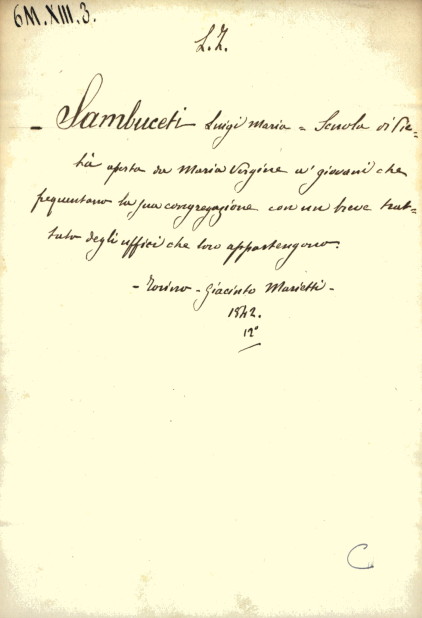 6M.XIII.3.
L.I.
- Sambuceti Luigi Maria = Scuola di Pie=
tà aperta da Maria Vergine a' giovani che
frequentano la sua congregazione con un breve trat=
tato degli uffici che loro appartengono.
- Torino - Giacinto Marietti -
1842.
12°
C